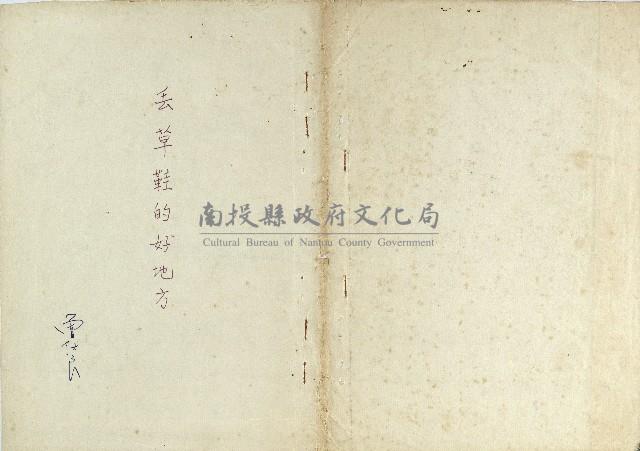 丢草鞋的好地方
南投縣政府文化局
Cultural Bureau of Nantou County Government